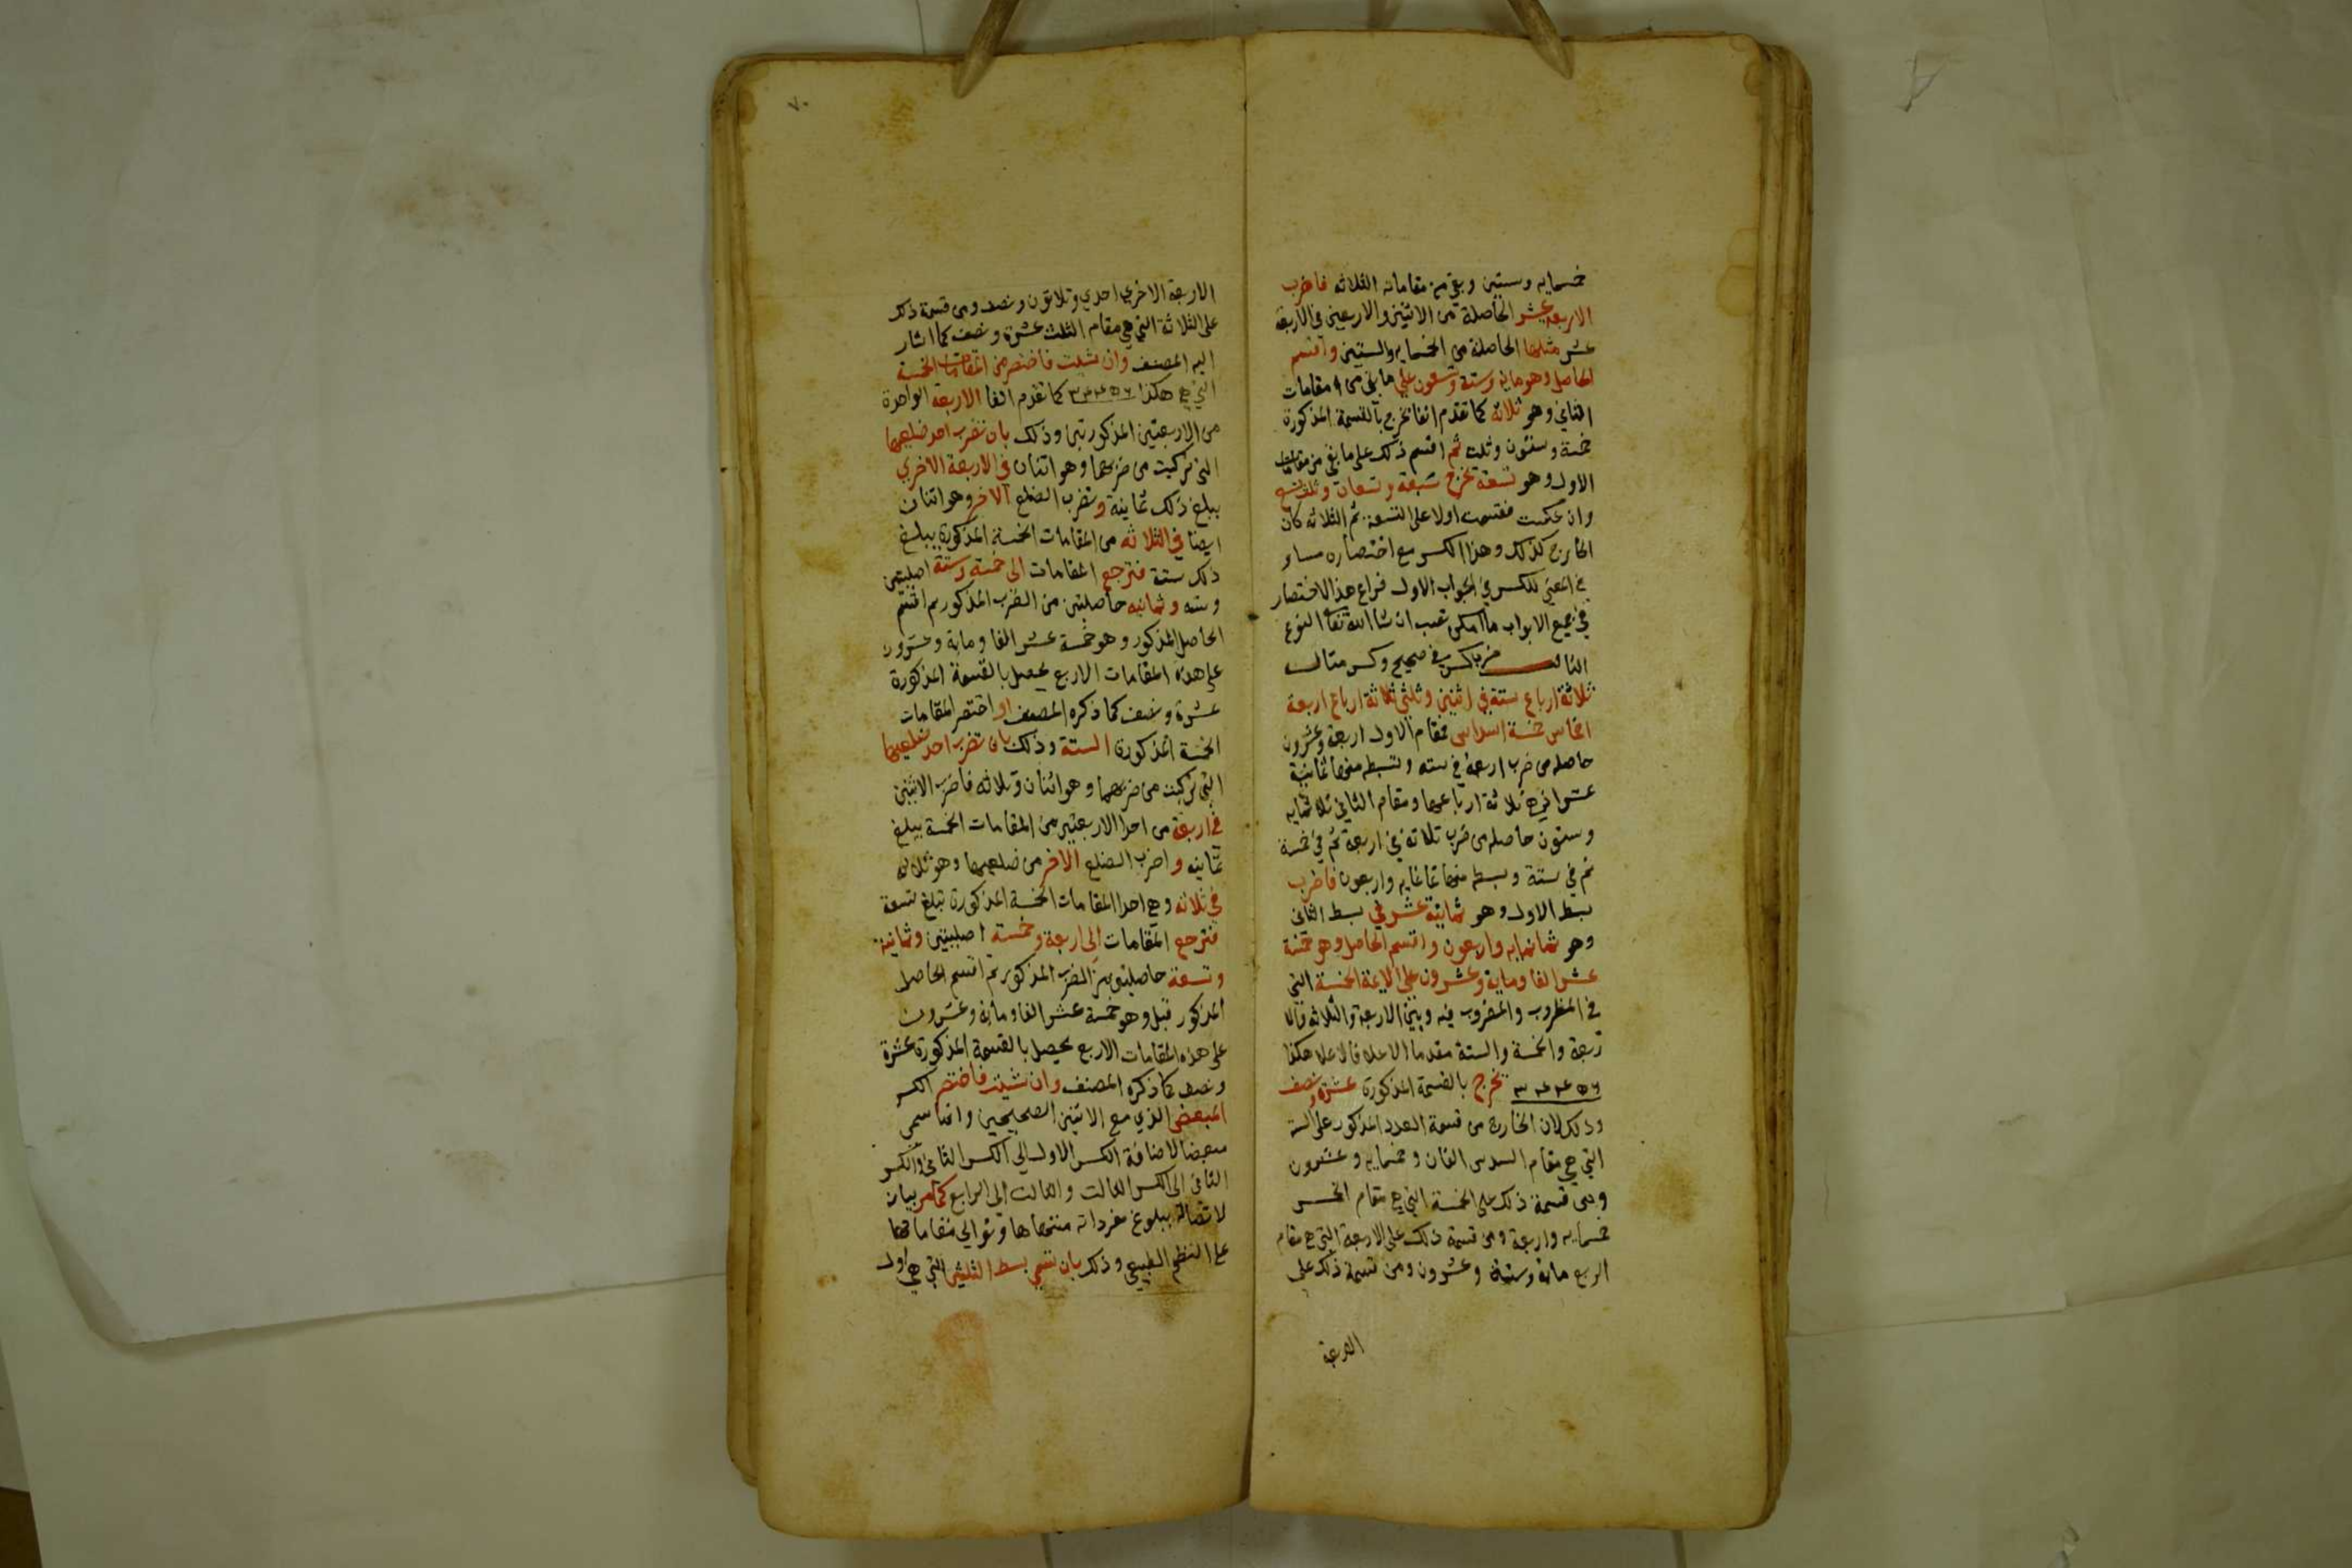 خمسمايه وستين وبقي من مقاماته الثلاثه فاضرب
الاربعه عشر الحاصلة من الاثنين والاربعين في الاربعة
عشر مثلها الحاصلة من الخمسمايه والستين واقسم
الحاصل وهو مايه وستة وتسعون علي ما بقي من مقامات
الثاني وهو ثلاثه كما تقدم انفا يخرج بالقسمة المذكورة
خمسة وستون وثلث ثم اقسم ذلك على ما بقي من مقامات
الاول وهو تسعة يخرج سبعة وتسعان وثلث تسع
وان عكست فقسمت اولا على التسعة ثم الثلاثه كان
الخارج كذلك وهذا الكسر مع اختصاره مساو
في المعني للكسر في الجواب الاول فراع هذا الاختصار
في جميع الابواب ما امكن تصب ان شا الله تعالي النوع
الثالث ضرب كسر في صحيح وكسر مثال
ثلاثة ارباع ستة في اثنين وثلثي ثلاثة ارباع اربعة
اخماس خمسة اسداس فمقام الاول اربعة وعشرون
حاصله من ضرب اربعة في سته وبسطه منها ثمانية
عشر اذ هي ثلاثة ارباعها ومقام الثاني ثلاثمايه
وستون حاصله من ضرب ثلاثة في اربعة ثم في خمسة
ثم في ستة وبسطه منها ثمانمايه واربعون فاضرب
بسط الاول وهو ثمانية عشر في بسط الثاني
وهو ثمانمايه واربعون واقسم الحاصل وهو خمسة
عشر الفا وماية وعشرون على الايمة الخمسة التي
في المضروب والمضروب فيه وهي الاربعة والثلاثه فالا
ربعة والخمسة والستة مقدما الاعلا فالاعلا هكذا
٣ ٤ ٤ ٥ ٦ يخرج بالقسمة المذكورة عشرة ونصف
وذلك لان الخارج من قسمة العدد المذكور على الستة
التي هي مقام السدس الفان وخمسمايه وعشرون
ومن قسمة ذلك على الخمسة التي هي مقام الخمس
خمسمايه واربعة ومن قسمة ذلك على الاربعة التي هي مقام
الربع ماية وستة وعشرون ومن قسمة ذلك على
الاربعة
٧٠
الاربعة الاخري احدي وثلاثون ونصف ومن قسمة ذلك
على الثلاثة التي هي مقام الثلث عشرة ونصف كما اشار
اليه المصنف وان شئت فاختصر من المقامات الخمسة
التي هي هكذا ٣ ٤ ٤ ٥ ٦ كما تقدم انفا الاربعة الواحدة
من الاربعتين المذكورتين وذلك بان تضرب احد ضلعيها
التي تركبت من ضربهما وهو اثنان في الاربعة الاخري
يبلغ ذلك ثمانية وتضرب الضلع الاخر وهو اثنان
ايضا في الثلاثه من المقامات الخمسة المذكورة يبلغ
ذلك ستة فترجع المقامات الى خمسة وستة اصليتين
وسته وثمانيه حاصلتين من الضرب المذكور ثم اقسم
الحاصل المذكور وهو خمسة عشر الفا وماية وعشرون
على هذه المقامات الاربع يحصل بالقسمة المذكورة
عشرة ونصف كما ذكره المصنف او اختصر المقامات
الخمسة المذكورة الستة وذلك بان تضرب احد ضلعيها
التي تركبت من ضربهما وهو اثنان وثلاثه فاضرب الاثنين
في اربعة من احد الاربعتين من المقامات الخمسة يبلغ
ثمانيه واضرب الضلع الاخر من ضلعيها وهو ثلاثه
في ثلاثه وهي احد المقامات الخمسة المذكورة تبلغ تسعة
فترجع المقامات الي اربعة وخمسة اصليتين وثمانية
وتسعة حاصلتين من الضرب المذكور ثم اقسم الحاصل
المذكور قبل وهو خمسة عشر الفا وماية وعشرون
على هذه المقامات الاربع يحصل بالقسمة المذكورة عشرة
ونصف كما ذكره المصنف وان شئت فاختصر الكسر
المبعض الذي مع الاثنين الصحيحين وانما سمي
مبعضا لاضافة الكسر الاول الي الكسر الثاني والكسر
الثاني الى الكسر الثالث والثالث الى الرابع كما مر بيان
لاتصاله ببلوغ مفرداته منتهاها وتوالي مقاماتها
على النظم الطبيعي وذلك بان تنسب بسط الثلثين التي هي اول